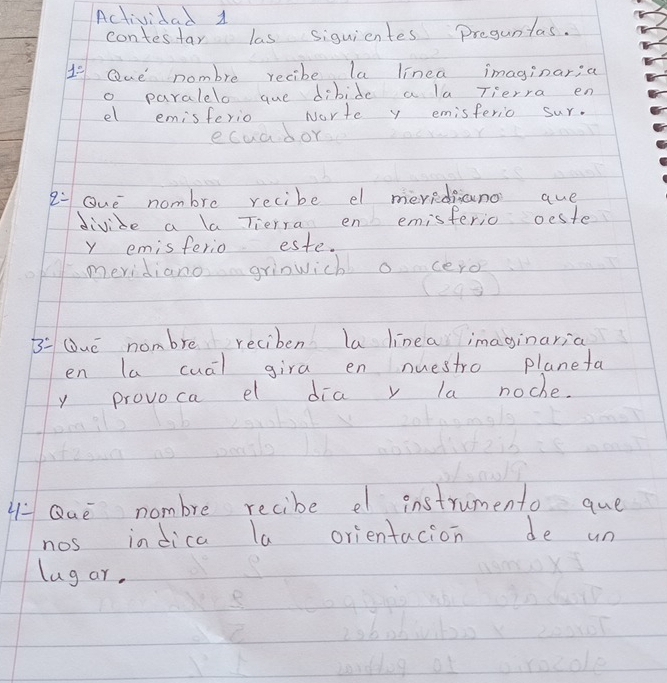 Actividad 1
contestar las siguientes Preguntas.
1= Qué nombre recibe la línea imaginaria
o paralelo que dibide a la Tierra en
el emisferio Norte y emisferio sur.
ecuador
2= Qué nombre recibe el meridiano que
divide a la Tierra en emisferio oeste
y emisferio este.
meridiano grinwich o cero
3= Qué nombre reciben la línea imaginaria
en la cuál gira en nuestro planeta
y provoca el día y la noche.
4= Qué nombre recibe el instrumento que
nos indica la orientación de un
lugar.